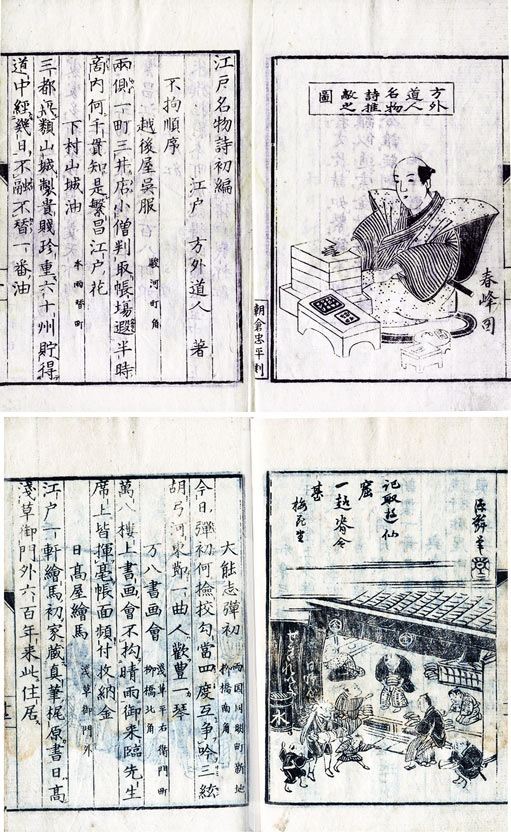 方外道人名物詩推敲之圖
春峰画
朝倉忠平刻
江戸名物詩初編
江戸 方外道人 著
不拘順序
越後屋呉服 駿河町角
兩側一町三井店小僧判取帳場遐半時
商内何千貫知是繁昌江戸花
下村山城油 本両替町
三都無類山城製貴賤珍重六十州貯得
道中經幾日不融不替一番油
記取遊仙
窟
一起
梅花
大能志彈初 両国同朋町新地 柳橋南角
今日彈初何撿挍勾當四度互爭吟三絃
胡弓河東節一曲人歡豊一琴
万八書画會 浅草平右衛門町 柳橋北角
萬八樓上書画會不拘晴雨御来臨先生
席上皆揮毫帳面頻付收納金
日髙屋繪馬 浅草御門外
江戸一軒繪馬初家蔵真筆梶原書日髙
淺草御門外六百年来此住居